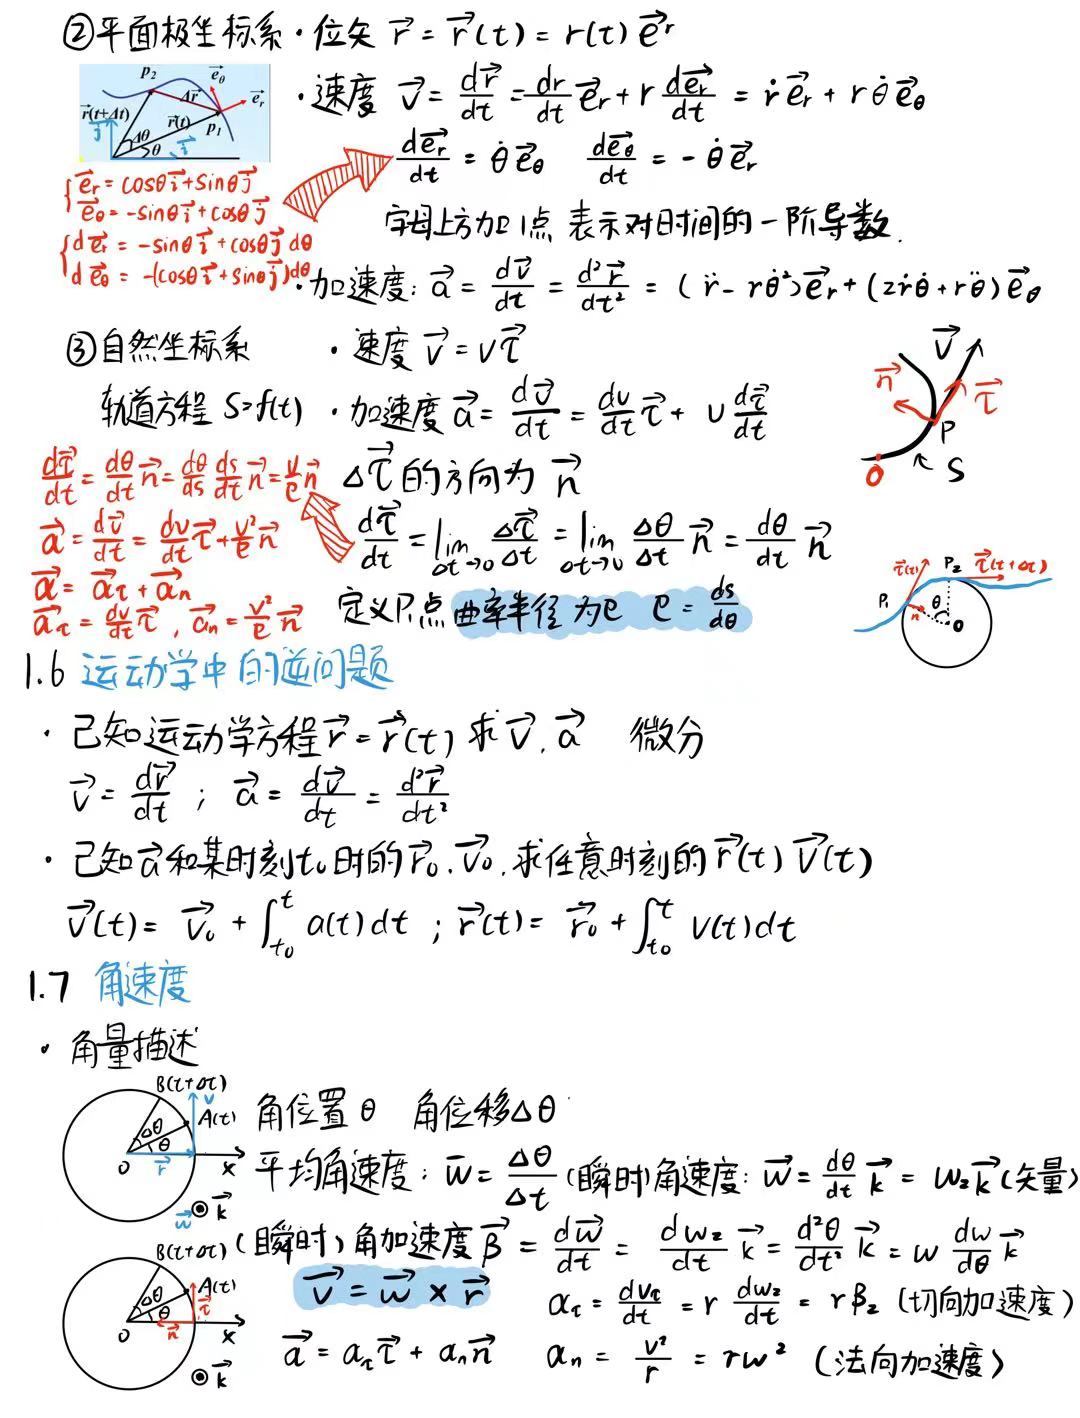 ②平面极坐标系 · 位矢 r⃗ = r⃗(t) = r(t) e⃗r
p₂ Δr⃗ e⃗θ e⃗r
r⃗(t+Δt) r⃗(t) p₁
j⃗ Δθ θ i⃗
· 速度 v⃗ = dr⃗/dt = dr/dt e⃗r + r de⃗r/dt = ṙe⃗r + rθ̇e⃗θ
de⃗r/dt = θ̇e⃗θ de⃗θ/dt = -θ̇e⃗r
{e⃗r = cosθi⃗+sinθj⃗
e⃗θ = -sinθi⃗+cosθj⃗
{de⃗r = -sinθi⃗+cosθj⃗ dθ
de⃗θ = -(cosθi⃗+sinθj⃗)dθ
字母上方加1点 表示对时间的一阶导数.
· 加速度: a⃗ = dv⃗/dt = d²r⃗/dt² = (r̈ - rθ̇²)e⃗r + (2ṙθ̇ + rθ̈)e⃗θ
③自然坐标系 · 速度 v⃗ = vτ⃗
轨道方程 S=f(t) · 加速度 a⃗ = dv⃗/dt = dv/dt τ⃗ + v dτ⃗/dt
v⃗ n⃗ τ⃗ P O S
dτ⃗/dt = dθ/dt n⃗ = dθ/ds ds/dt n⃗ = v/ρ n⃗
Δτ⃗的方向为 n⃗
a⃗ = dv⃗/dt = dv/dt τ⃗ + v²/ρ n⃗
dτ⃗/dt = lim Δt→0 Δτ⃗/Δt = lim Δt→0 Δθ/Δt n⃗ = dθ/dt n⃗
a⃗ = a⃗τ + a⃗n
a⃗τ = dv/dt τ⃗, a⃗n = v²/ρ n⃗
定义P.点曲率半径为ρ ρ = ds/dθ
τ⃗(t) P₂ τ⃗(t+Δt)
P₁ n⃗ θ O
1.6 运动学中的逆问题
· 已知运动学方程 r⃗ = r⃗(t) 求 v⃗, a⃗ 微分
v⃗ = dr⃗/dt ; a⃗ = dv⃗/dt = d²r⃗/dt²
· 已知a⃗和某时刻t₀时的r⃗₀, v⃗₀, 求任意时刻的r⃗(t) v⃗(t)
v⃗(t) = v⃗₀ + ∫t₀^t a(t)dt ; r⃗(t) = r⃗₀ + ∫t₀^t v(t)dt
1.7 角速度
· 角量描述
B(t+Δt) v⃗ A(t)
Δθ θ
O r⃗ x
w⃗ ⊙ k⃗
角位置θ 角位移Δθ
平均角速度: w̄ = Δθ/Δt (瞬时)角速度: w⃗ = dθ/dt k⃗ = wzk⃗ (矢量)
(瞬时)角加速度 β⃗ = dw⃗/dt = dwz/dt k⃗ = d²θ/dt² k⃗ = w dw/dθ k⃗
B(t+Δt) A(t)
Δθ θ τ⃗
O n⃗ x
⊙ k⃗
v⃗ = w⃗ × r⃗ aτ = dvτ/dt = r dwz/dt = rβz (切向加速度)
a⃗ = aττ⃗ + ann⃗ an = v²/r = rw² (法向加速度)